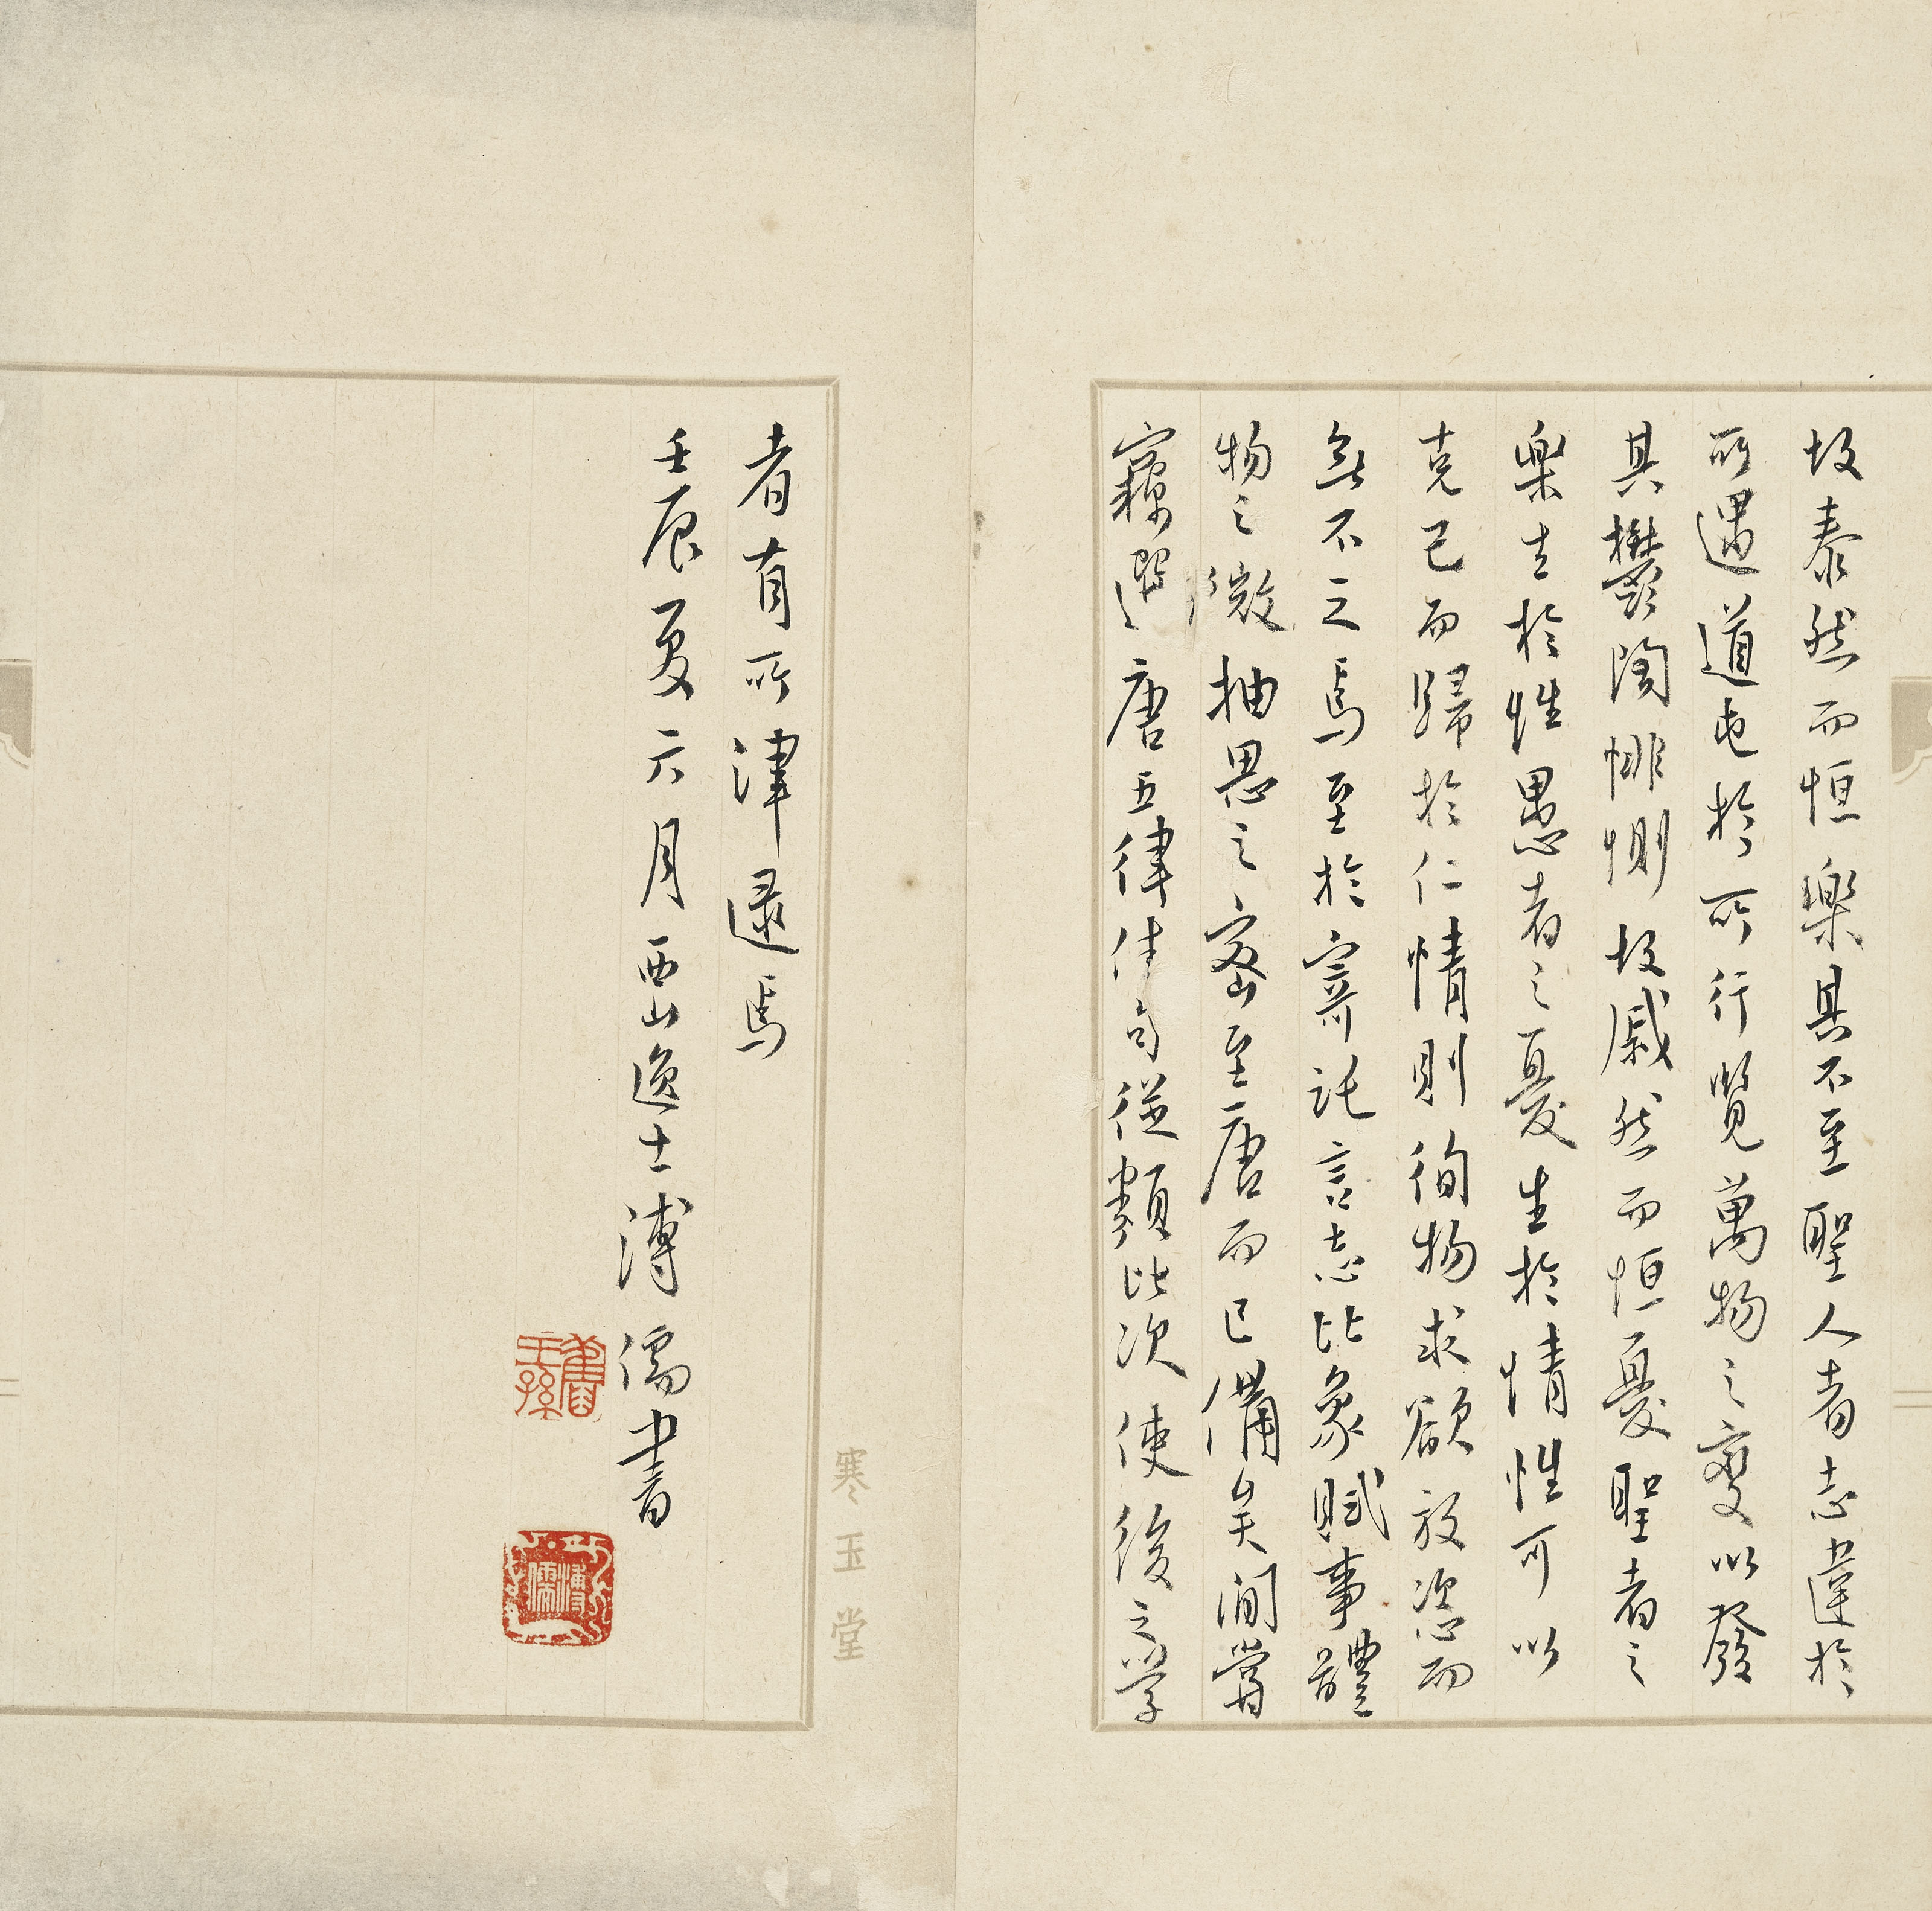 故泰然而恒樂其不至聖人者志違於
所遇道屯於所行覽萬物之變以發
其鬱陶悱惻故戚然而恒憂聖者之
樂生於性愚者之憂生於情性可以
克己而歸於仁情則徇物求欲放恣而
無不之焉至於寄託言志比象賦事體
物之微抽思之密至唐而已備矣間嘗
竊選唐五律佳句從類比次使後之學
者有所津逮焉
壬辰夏六月西山逸士溥儒書
舊王孫
溥儒
寒玉堂